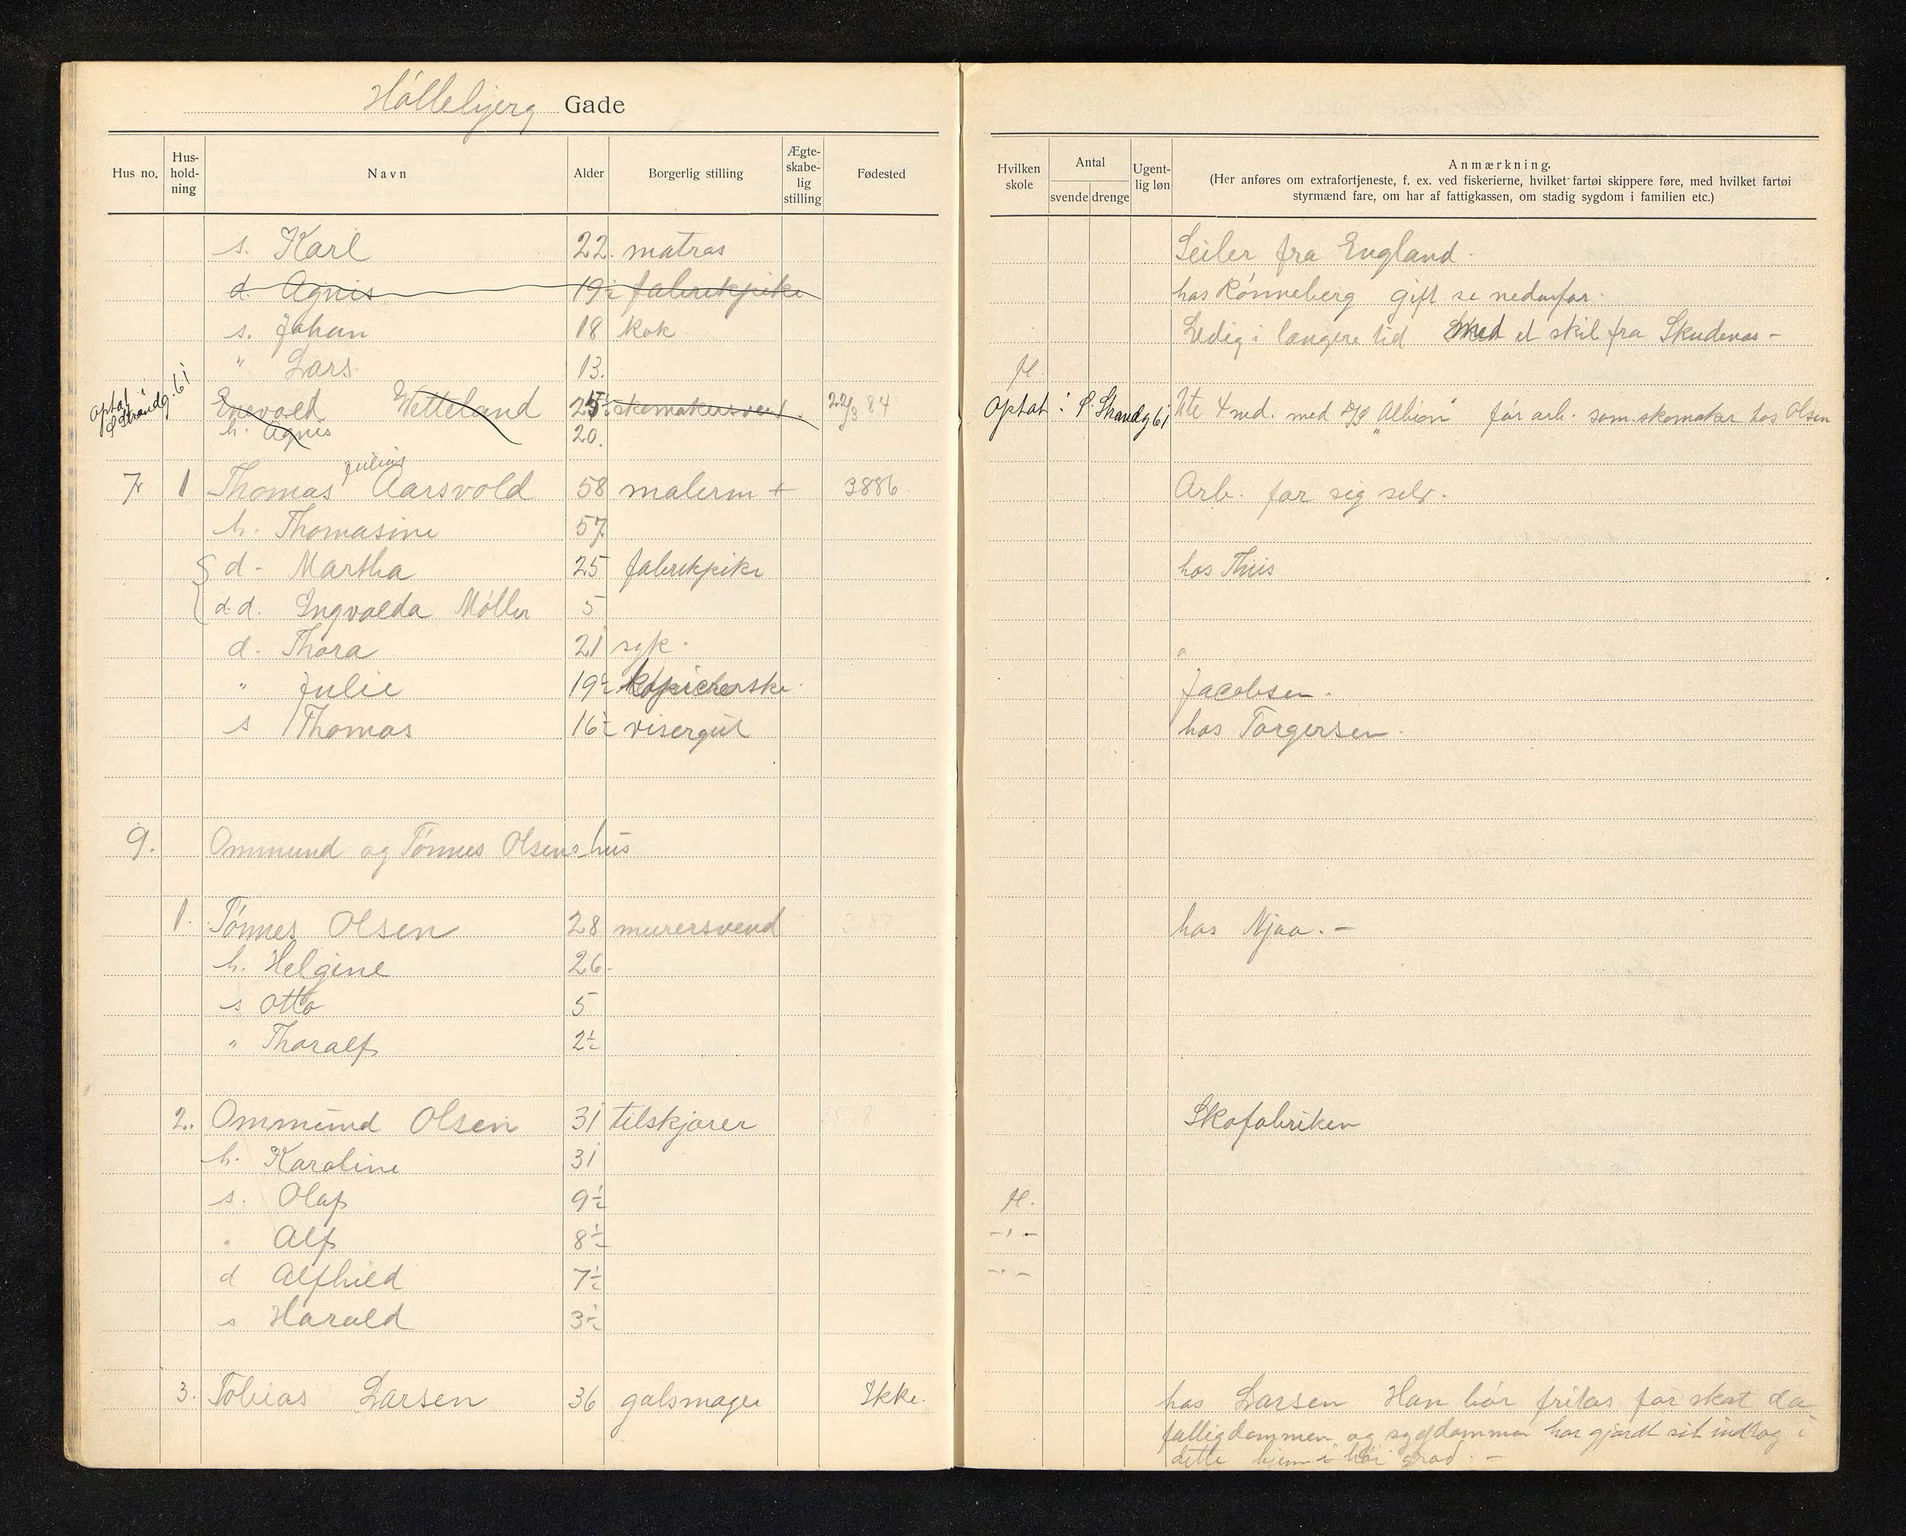 Hóllebjerg Gade
Hus no. Hus-hold-ning Navn Alder Borgerlig stilling Ægte-skabe-lig stilling Fødested
Hvilken skole Antal svende drenge Ugent-lig løn Anmærkning.
(Her anføres om extrafortjeneste, f. ex. ved fiskerierne, hvilket fartøi skippere føre, med hvilket fartøi
styrmænd fare, om har af fattigkassen, om stadig sygdom i familien etc.)
s. Karl 22. matros Seiler fra England.
d. Agnis 19½ fabrikpike hos Rónneberg gift se nedenfor.
s. Johan 18 kok Ledig i længere tid et skil fra Skudenes -
" Lars 13. H.
Optat i S Strandg. 61 Enevald Wetteland 25 skomakersvend. 22/3 84 Optat i S. Strandg 61 Ute 4 md. med D/S "Albion" får arb. som skomaker hos Olsen
h. Agnis 20.
7 1 Thomas Julius Aarsvold 58 malerm + 3886. Arb. for sig selv.
h. Thomasine 57.
d - Martha 25 fabrikpike hos Thiis
d.d. Ingvalda Móller 5
d. Thora 21 syk. "
" Julie 19½ Jacobsen.
s Thomas 16½ visergut hos Torgersen.
9. Ommund og Tónnes Olsens hus
1. Tónnes Olsen 28 murersvend hos Njaa. -
h. Helgine 26.
s Otto 5
" Tharalf 2½
2. Ommund Olsen 31 tilskjærer Skofabriken
h. Karoline 31
s. Olaf 9½ H.
" Alf 8½ - " -
d Alfhild 7½ - " -
s Harald 3½
3. Tobias Larsen 36 galsmager Ikke. hos Larsen Han bór fritas for skat da
fattigdommen og sygdommen har gjordt sit indtog i
dette hjem i hói grad. -